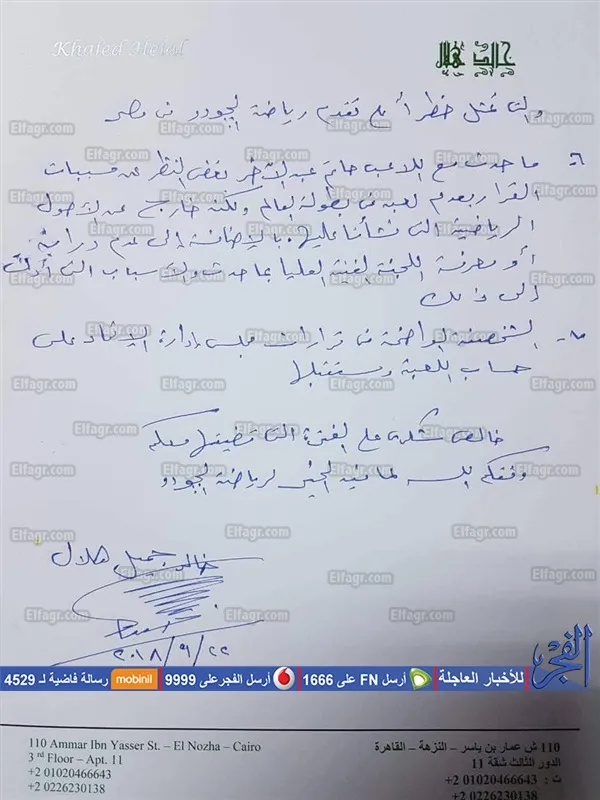 Khaled Helal
خالد هلال
والتى تمثل خطراً على تقدم رياضة الجودو فى مصر
٦- ما حدث مع اللاعب حاتم عبد الآخر بغض النظر عن مسببات
القرار بعدم لعبه فى بطولة العالم ولكنه خارج عن الأصول
الرياضية التى نشأنا عليها. بالإضافة إلى عدم دراية
أو معرفة اللجنة الفنية العليا بما حدث والأسباب التى أدت
إلى ذلك
الشخصنة الواضحة فى قرارات مجلس إدارة الاتحاد على
حساب اللعبة ومستقبلها
خالص شكرى على الفترة التى قضيتها معكم
وفقكم الله لما فيه الخير لرياضة الجودو
خالد جميل هلال
٢٠١٨/٩/٢٢
الفجر
للأخبار العاجلة أرسل FN على 1666 أرسل الفجر على 9999 mobinil رسالة فاضية لـ 4529
110 ش عمار بن ياسر – النزهة – القاهرة
الدور الثالث شقة 11
ت : 01020466643 2+
0226230138 2+
110 Ammar Ibn Yasser St. – El Nozha – Cairo
3rd Floor – Apt. 11
+2 01020466643
+2 0226230138
Elfagr.com